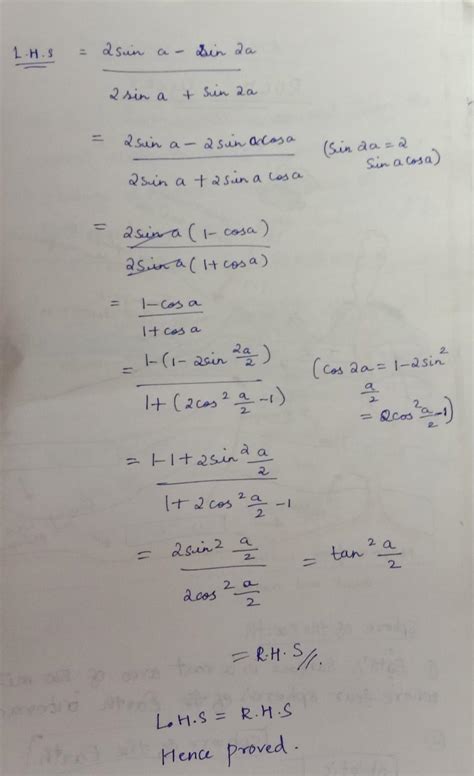 L.H.S = 2sin a - sin 2a
2sin a + sin 2a
= 2sin a - 2sin a cos a (sin 2a = 2
2sin a + 2sin a cos a sin a cos a)
= 2sin a (1 - cos a)
2sin a (1 + cos a)
= 1 - cos a
1 + cos a
= 1-(1-2sin² a/2) (cos 2a = 1-2sin²
1+(2cos² a/2 -1) a/2
= 2cos² a/2 -1)
= 1-1+2sin² a/2
1+2cos² a/2 -1
= 2sin² a/2 = tan² a/2
2cos² a/2
= R.H.S //.
L.H.S = R.H.S
Hence proved.